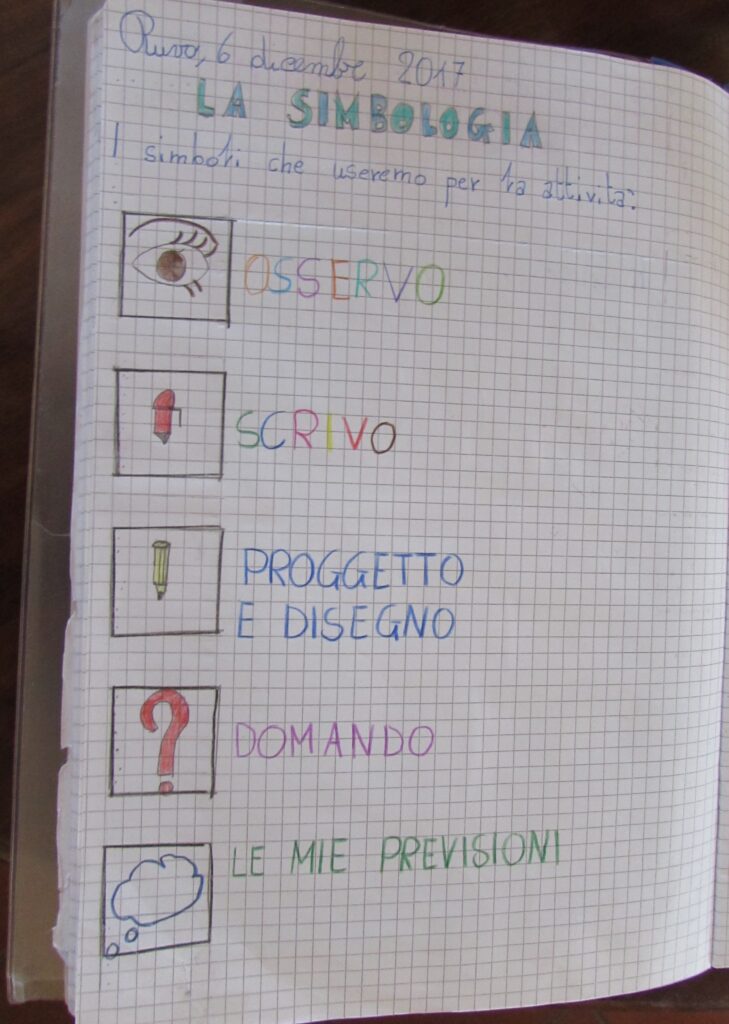 Ruvo, 6 dicembre 2017
LA SIMBOLOGIA
I simboli che useremo per la attività:
OSSERVO
SCRIVO
PROGGETTO
E DISEGNO
DOMANDO
LE MIE PREVISIONI